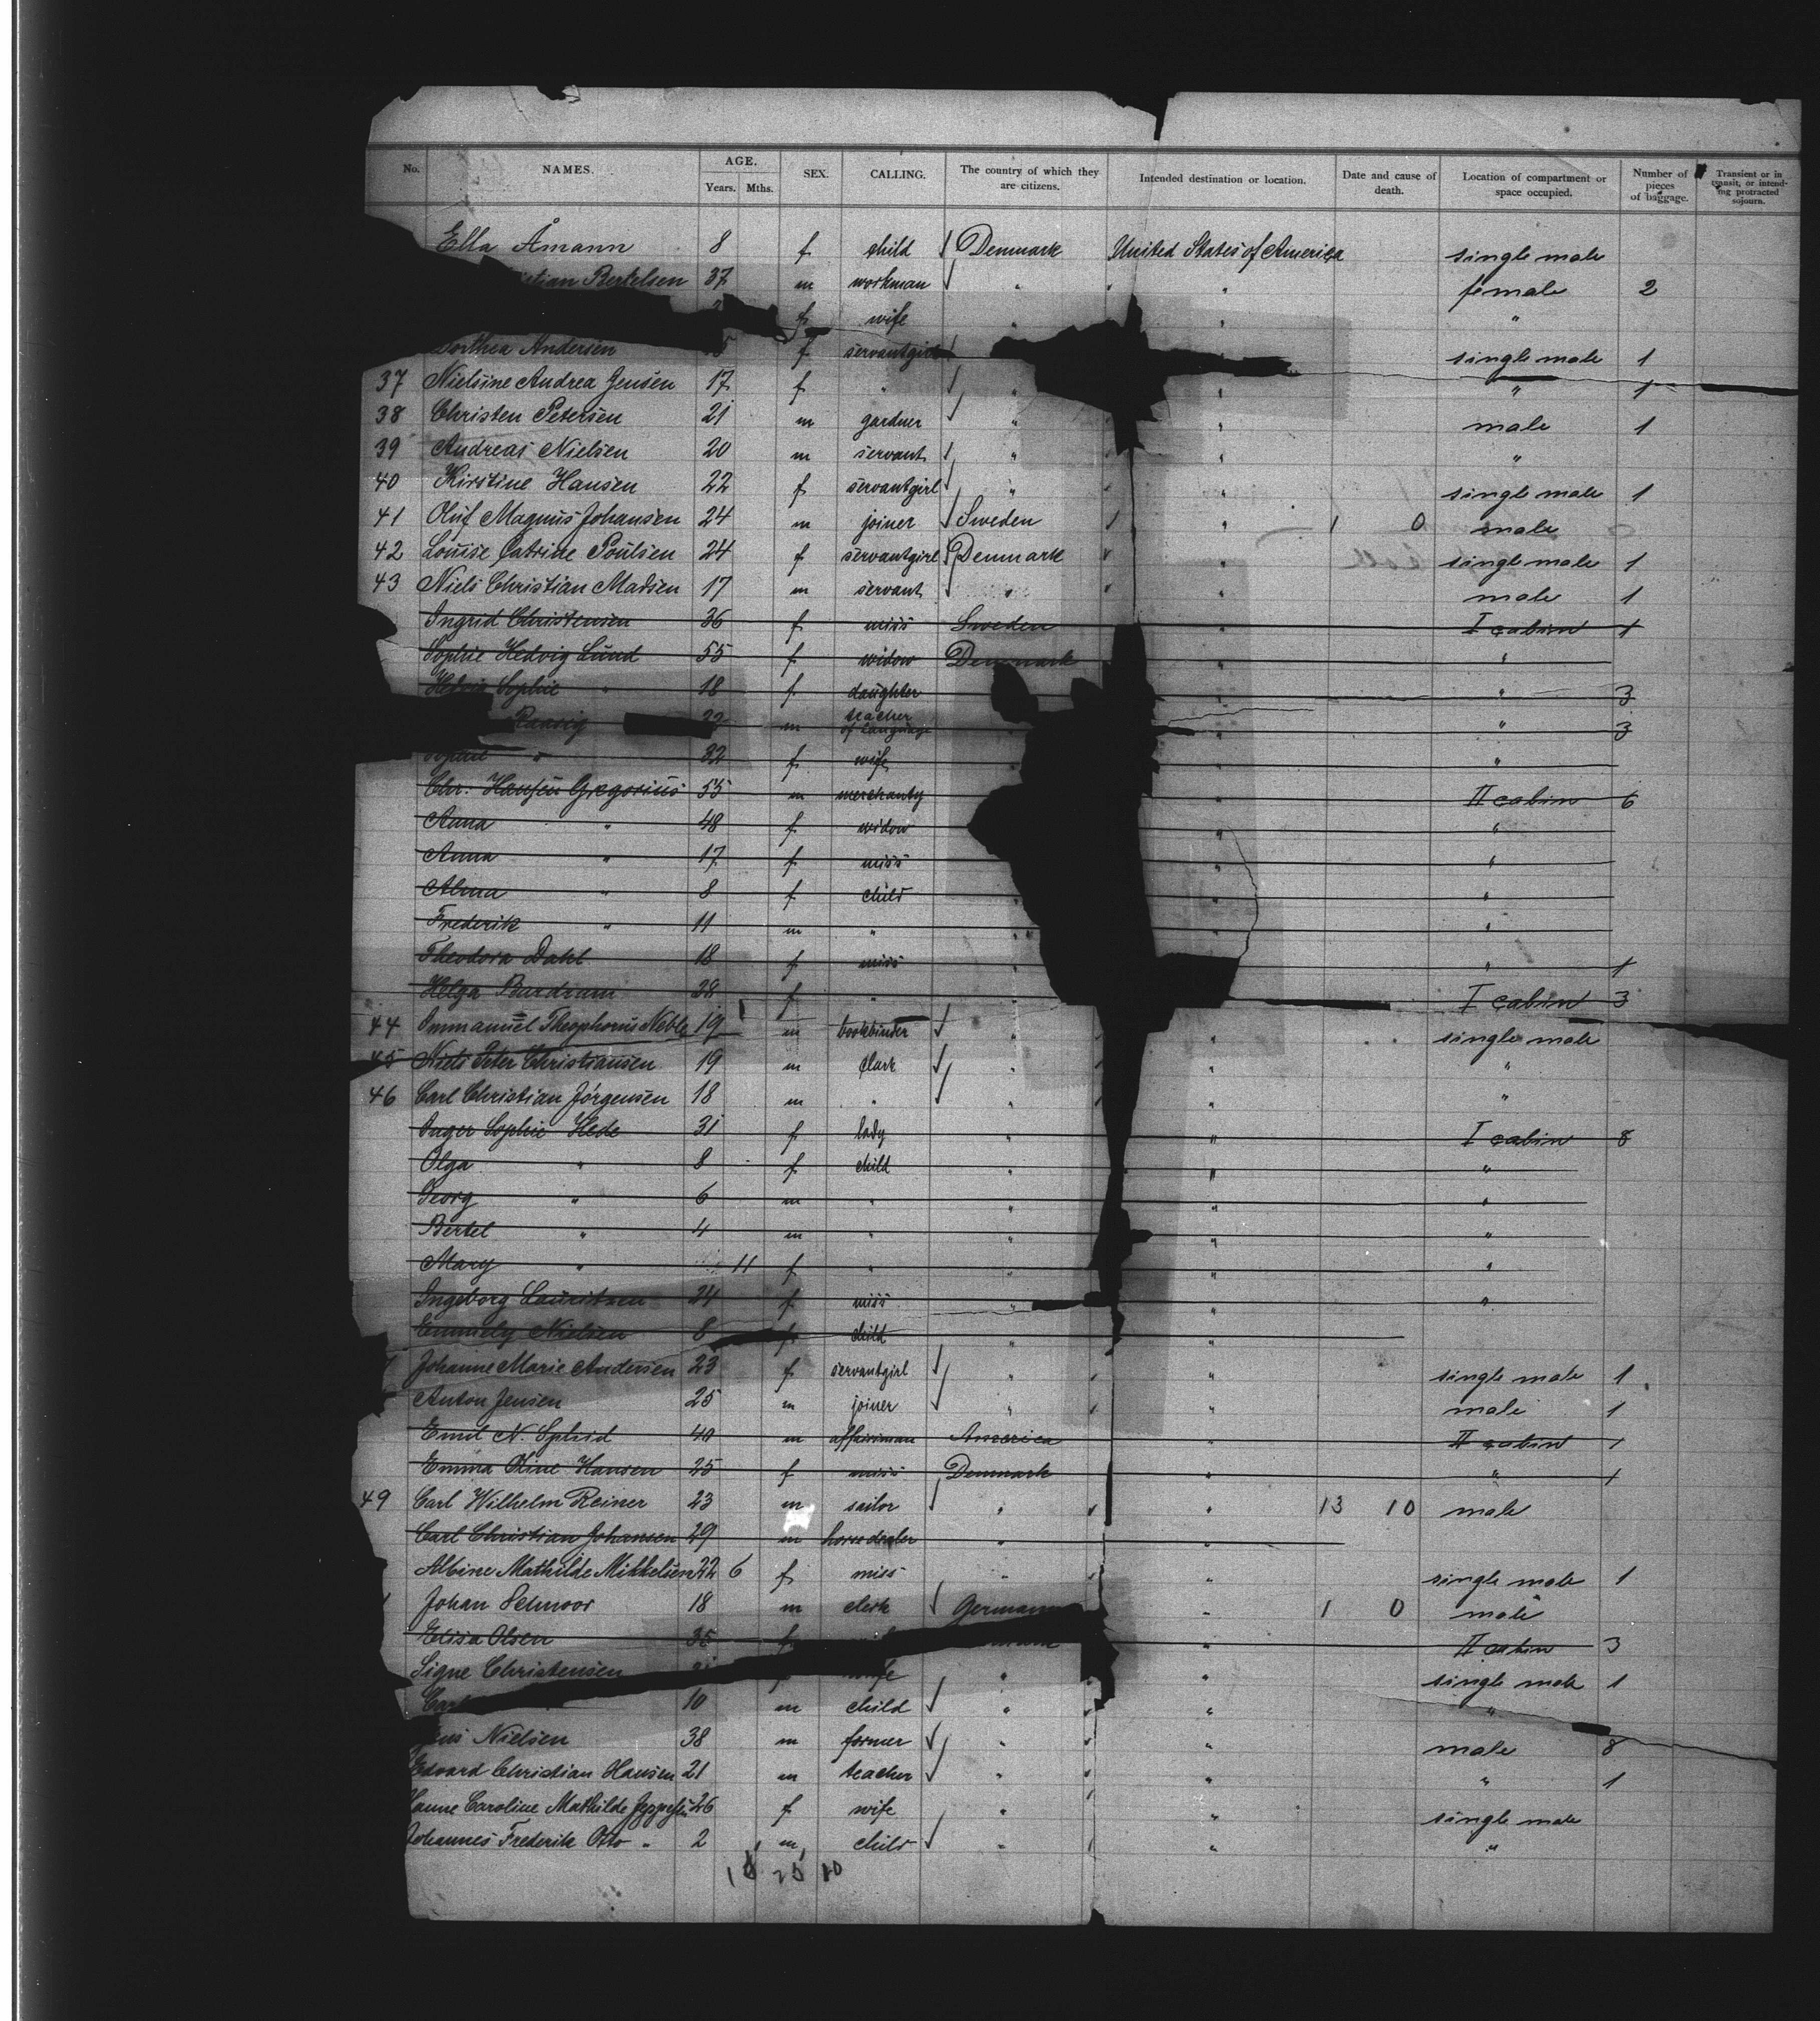 No. NAMES. AGE. SEX. CALLING. The country of which they are citizens. Intended destination or location. Date and cause of death. Location of compartment or space occupied. Number of pieces of baggage. Transient or in transit, or intending protracted sojourn.
Years. Mths.
Ella Åmann 8 f child Denmark United States of America single male
Bertelsen 37 m workman " " female 2
f wife " " "
Dorthea Andersen f servantgirl " single male 1
37 Nielsine Andrea Jensen 17 f " " " " 1
38 Christen Petersen 21 m gardner " " male 1
39 Andreas Nielsen 20 m servant " " "
40 Kirstine Hansen 22 f servantgirl " " single male 1
41 Oluf Magnus Johansen 24 m joiner Sweden " 1 0 male
42 Louise Catrine Poulsen 24 f servantgirl Denmark " single male 1
43 Niels Christian Madsen 17 m servant " " male 1
Ingrid Christensen 36 f miss Sweden " I cabin 1
Sophie Hedvig Lund 55 f widow Denmark " "
Sophie " 18 f daughter " " 3
m teacher of language " " 3
" 32 f wife " "
Chr. Hansen Gregorius 55 m merchant " II cabin 6
Anna " 48 f widow " "
Anna " 17 f miss " "
Alma " 8 f child " "
Frederik " 11 m " " " "
Theodora Dahl 18 f miss " " 1
Helga Bardram 28 f " I cabin 3
44 Immanuel Theophorus 19 m bookbinder " " single male
45 Niels Peter Christiansen 19 m " " "
46 Carl Christian Jörgensen 18 m " " " "
Inger Sophie Hede 31 f lady " " I cabin 8
Olga " 8 f child " " "
Georg " 6 m " " " "
Bertel " 4 m " " " "
Mary " 11 f " " " "
Ingeborg Lauritzen 24 f miss " " "
Emmely Nielsen 8 f child " "
Johanne Marie Andersen 23 f servantgirl " " single male 1
Anton Jensen 25 m joiner " " male 1
Emil N. 40 m America " II cabin 1
Emma Oline Hansen 25 f miss Denmark " " 1
49 Carl Wilhelm Reiner 23 m sailor " " 13 10 male
Carl Christian Johansen 29 m horsedealer " "
Albine Mathilde Mikkelsen 22 6 f miss " " single male 1
Johan Schnoor 18 m clerk German " 1 0 male
Elisa Olsen 35 f " II cabin 3
Signe Christensen wife " " single male 1
10 m child " " "
Nielsen 38 m farmer " " male 8
Edvard Christian Hansen 21 m teacher " " " 1
Caroline Mathilde Jeppesen 26 f wife " " single male
Johannes Frederik Otto " 2 m child " " "